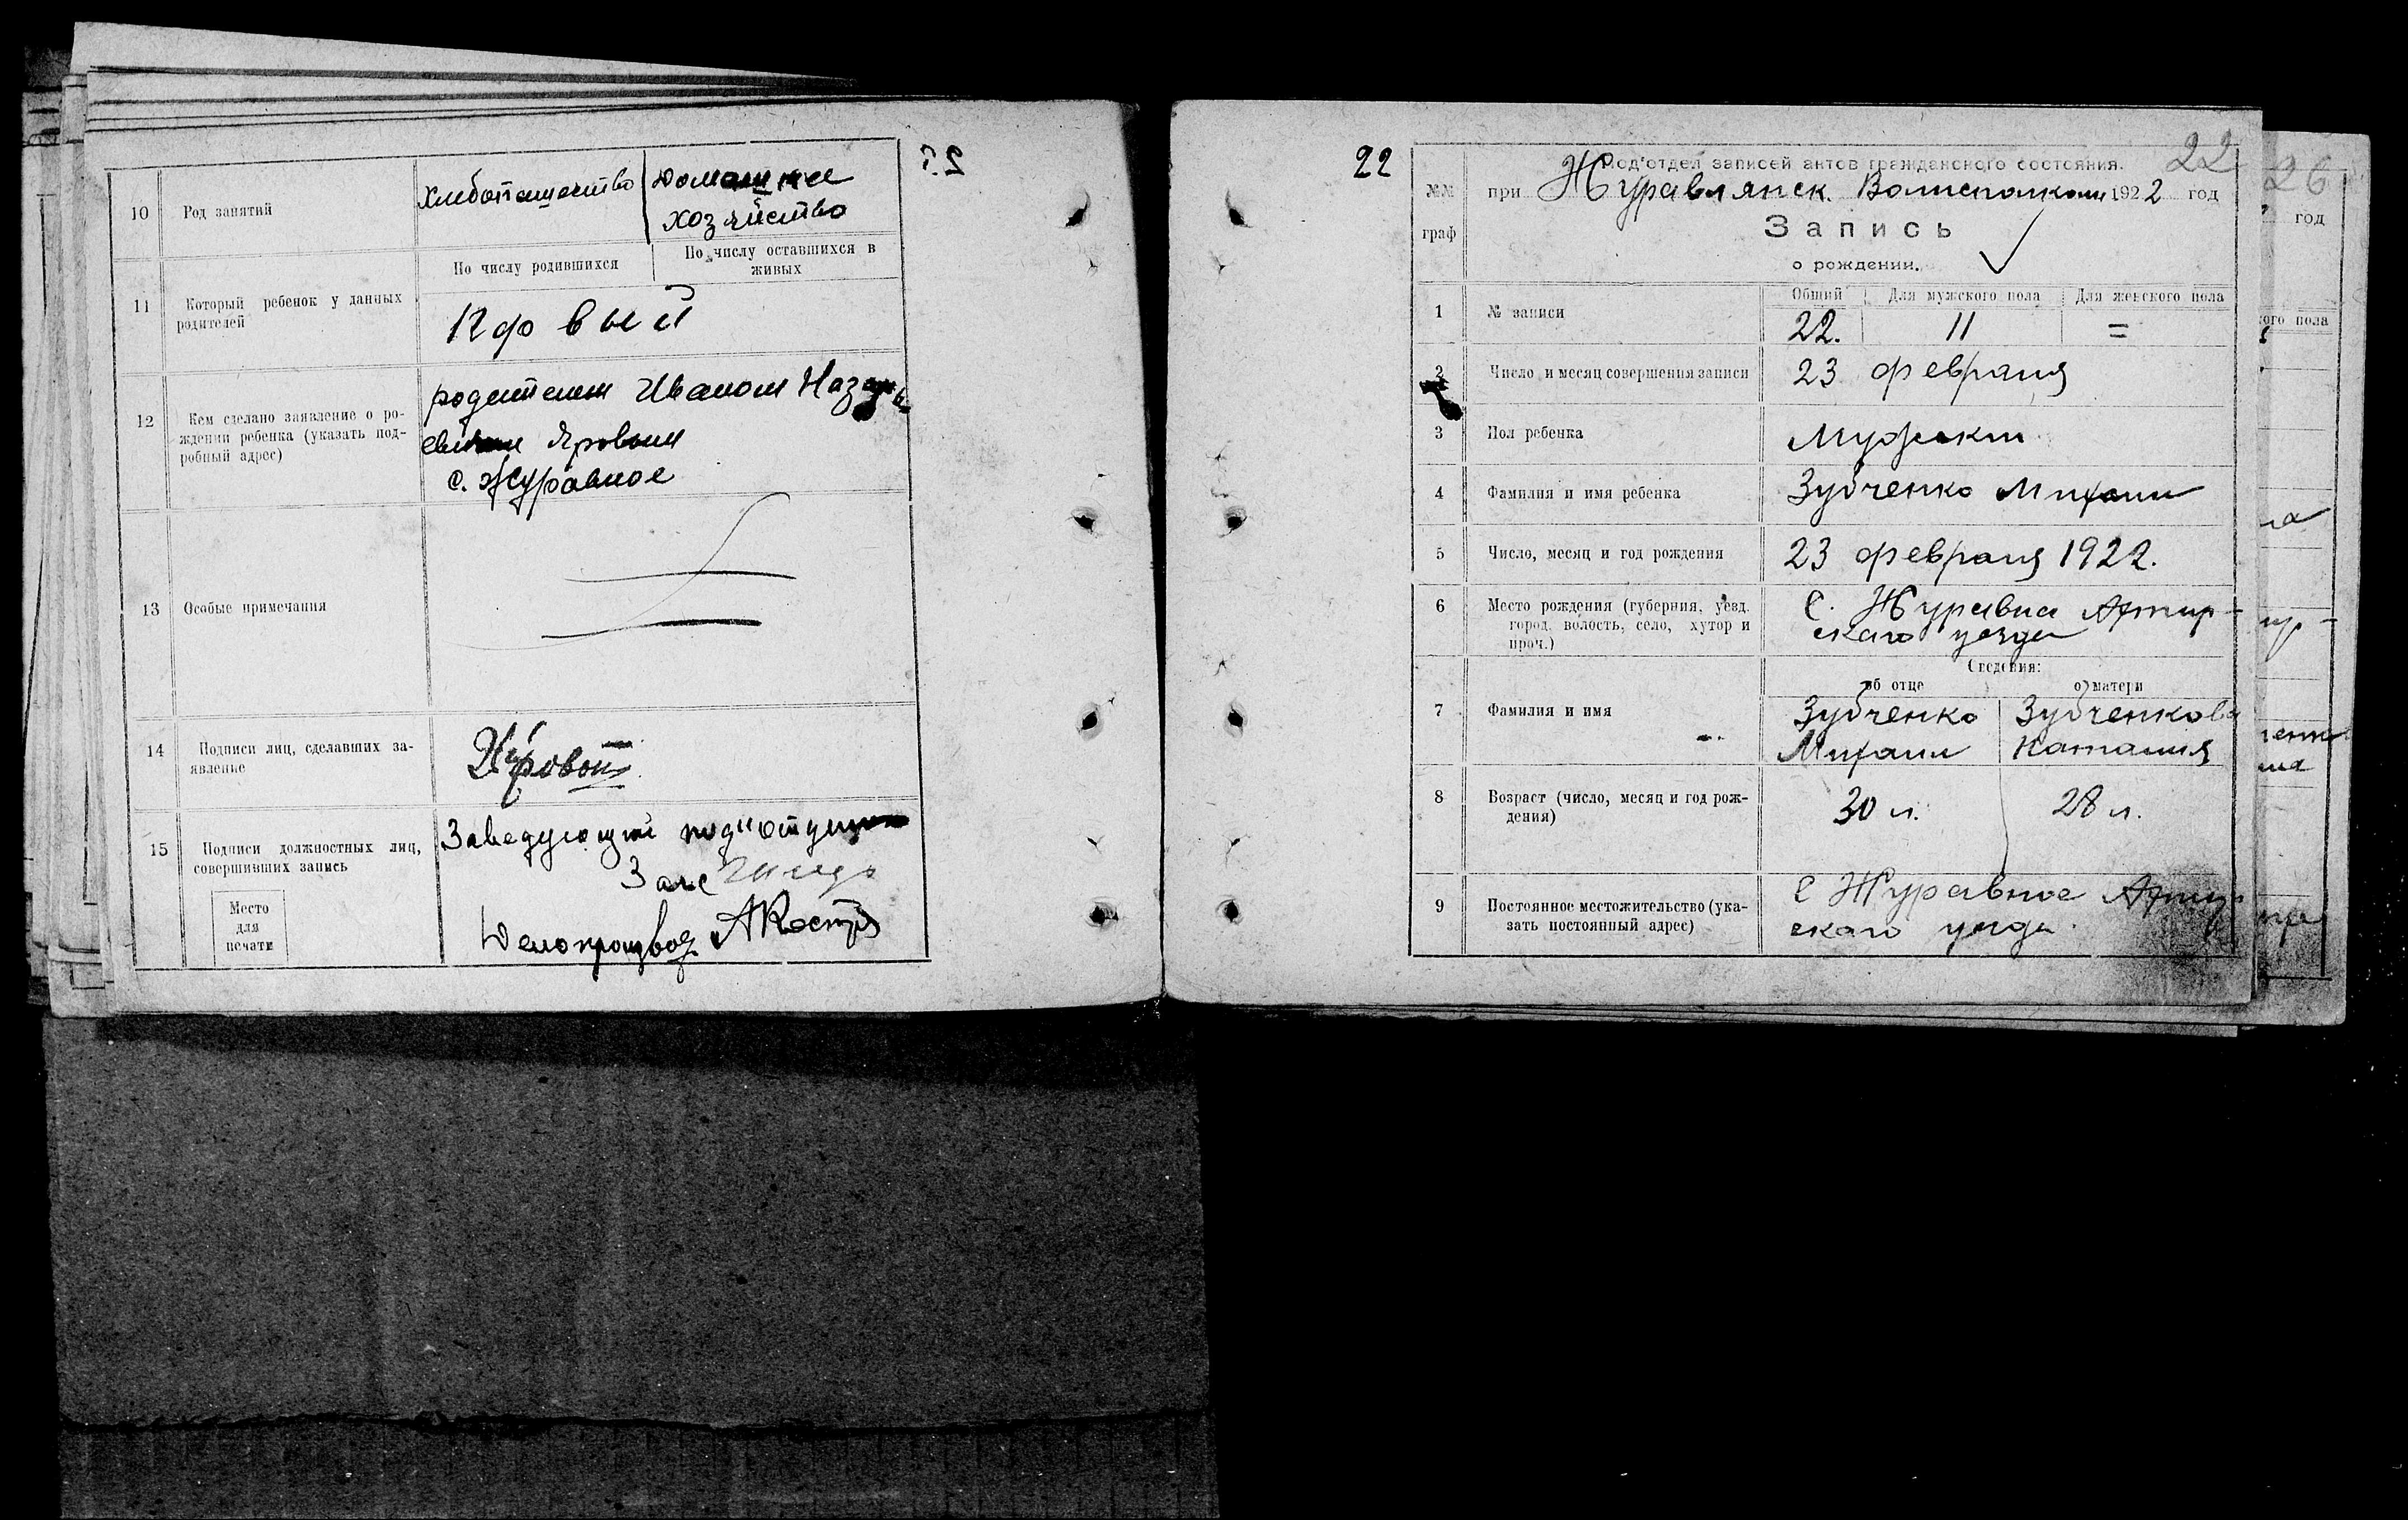 10 Род занятий
Хлебопашество
Домашнее
хозяйство
По числу родившихся
По числу оставшихся в
живых
11 Который ребенок у данных
родителей
12 Кем сделано заявление о ро-
ждении ребенка (указать под-
робный адрес)
родителем Иваном Назарь
евичем Яровым
с. Журавное
13 Особые примечания
14 Подписи лиц, сделавших за-
явление
Яровой
15 Подписи должностных лиц,
совершивших запись
Заведующий под'отделом
Делопроизвод.
Место
для
печати
22
22
№№
граф
Под'отдел записей актов гражданского состояния.
при Журавлянск. Волисполкоми 1922 год
Запись
о рождении.
Общий Для мужского пола Для женского пола
1 № записи 22. 11 =
2 Число и месяц совершения записи 23 февраля
3 Пол ребенка Мужским
4 Фамилия и имя ребенка Зубченко Михаил
5 Число, месяц и год рождения 23 февраля 1922.
6 Место рождения (губерния, уезд.
город, волость, село, хутор и
проч.)
С. Журавна Ахтир-
скаго уезда
Сведения:
об отце о матери
7 Фамилия и имя
Зубченко Зубченкова
Михаил Наталия
8 Возраст (число, месяц и год рож-
дения)
30 л. 28 л.
9 Постоянное местожительство (ука-
зать постоянный адрес)
С Журавное Ахтир
скаго уезда
26
год
ого пола